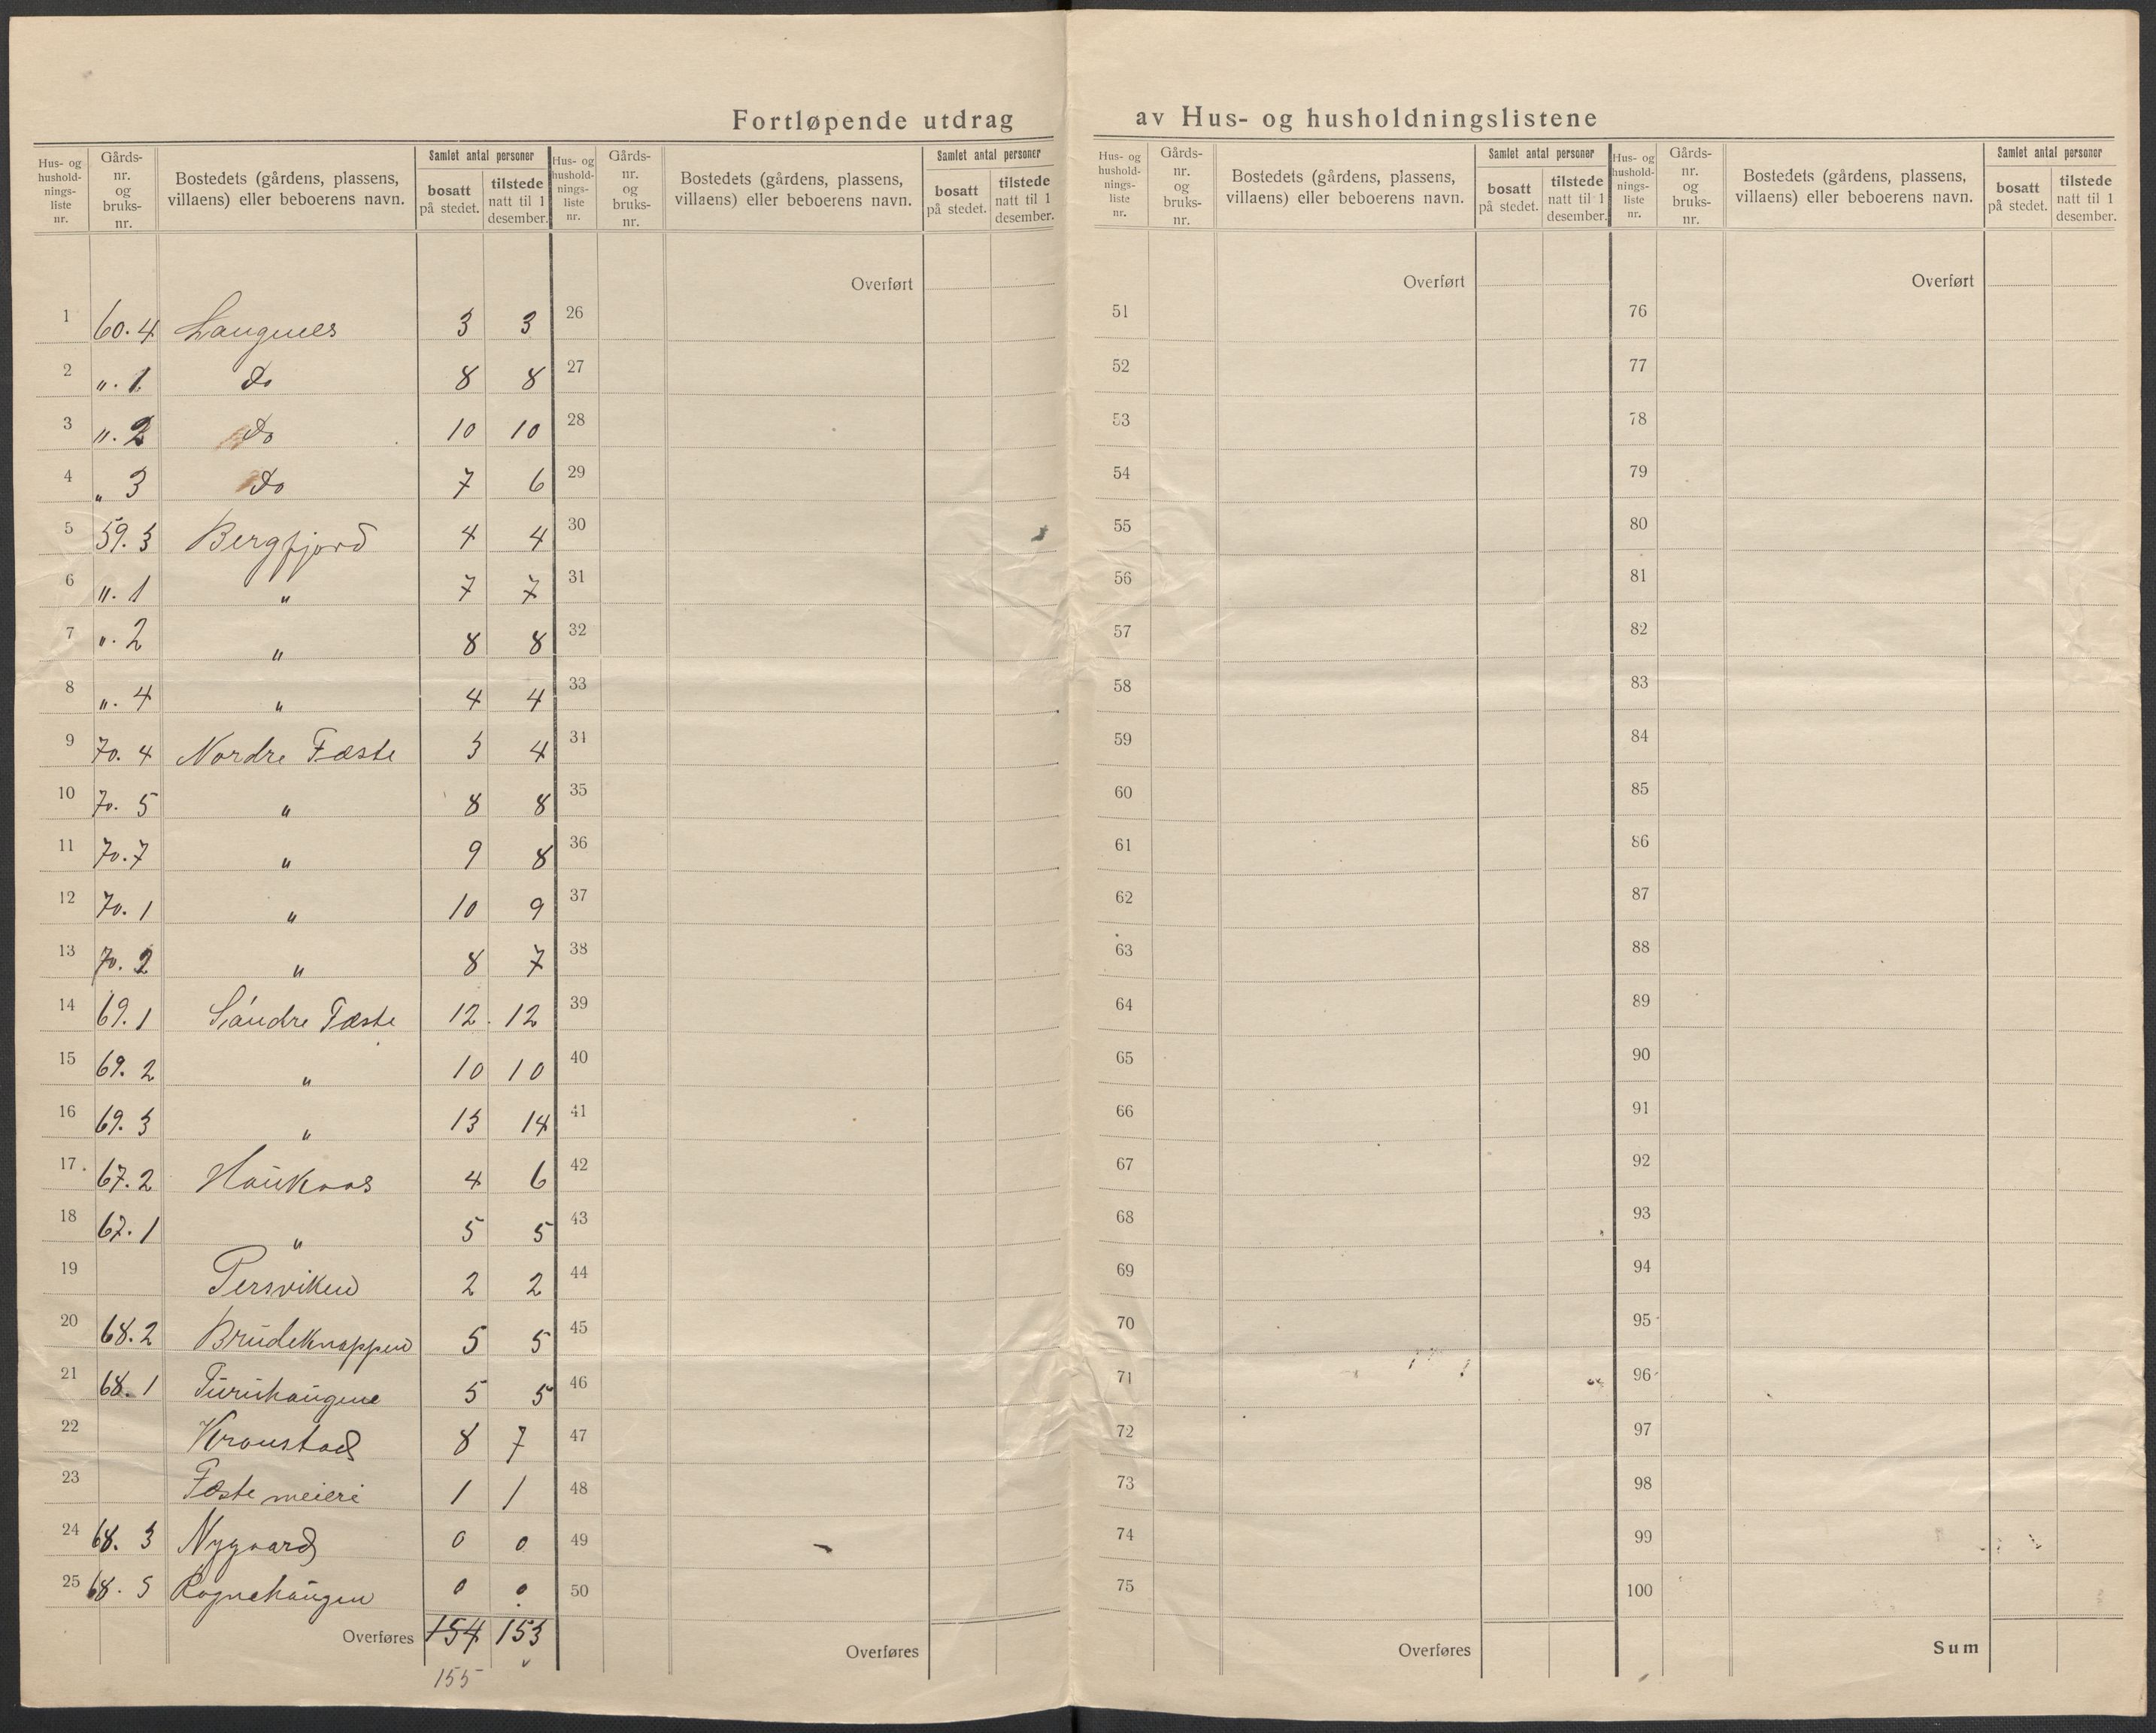 Fortløpende utdrag av Hus- og husholdningslistene
Hus- og husholdnings-liste nr. Gårds-nr. og bruks-nr. Bostedets (gårdens, plassens, villaens) eller beboerens navn. Samlet antal personer bosatt på stedet. tilstede natt til 1 desember.
Hus- og husholdnings-liste nr. Gårds-nr. og bruks-nr. Bostedets (gårdens, plassens, villaens) eller beboerens navn. Samlet antal personer bosatt på stedet. tilstede natt til 1 desember.
Hus- og husholdnings-liste nr. Gårds-nr. og bruks-nr. Bostedets (gårdens, plassens, villaens) eller beboerens navn. Samlet antal personer bosatt på stedet. tilstede natt til 1 desember.
Hus- og husholdnings-liste nr. Gårds-nr. og bruks-nr. Bostedets (gårdens, plassens, villaens) eller beboerens navn. Samlet antal personer bosatt på stedet. tilstede natt til 1 desember.
1 60.4 Langnes 3 3
2 ". 1 Do 8 8
3 ". 2 Do 10 10
4 " 3 Do 7 6
5 59.3 Bergfjord 4 4
6 ". 1 " 7 7
7 ". 2 " 8 8
8 ". 4 " 4 4
9 70. 4 Nordre Fæste 3 4
10 70. 5 " 8 8
11 70.7 " 9 8
12 70. 1 " 10 9
13 70. 2 " 8 7
14 69. 1 Søndre Fæste 12 12
15 69. 2 " 10 10
16 69. 3 " 13 14
17 67.2 Haukaas 4 6
18 67. 1 " 5 5
19 Persviken 2 2
20 68.2 Brudeknappen 5 5
21 68. 1 5 5
22 Kronstad 8 7
23 Fæste meieri 1 1
24 68. 3 Nygaard 0 0
25 68. 5 Rognehaugen 0 0
Overføres 154 153
155
Overført
26
27
28
29
30
31
32
33
31
35
36
37
38
39
40
41
42
43
44
45
46
47
48
49
50
Overføres
Overført
51
52
53
54
55
56
57
58
59
60
61
62
63
64
65
66
67
68
69
70
71
72
73
74
75
Overføres
Overført
76
77
78
79
80
81
82
83
84
85
86
87
88
89
90
91
92
93
94
95
96
97
98
99
100
Sum